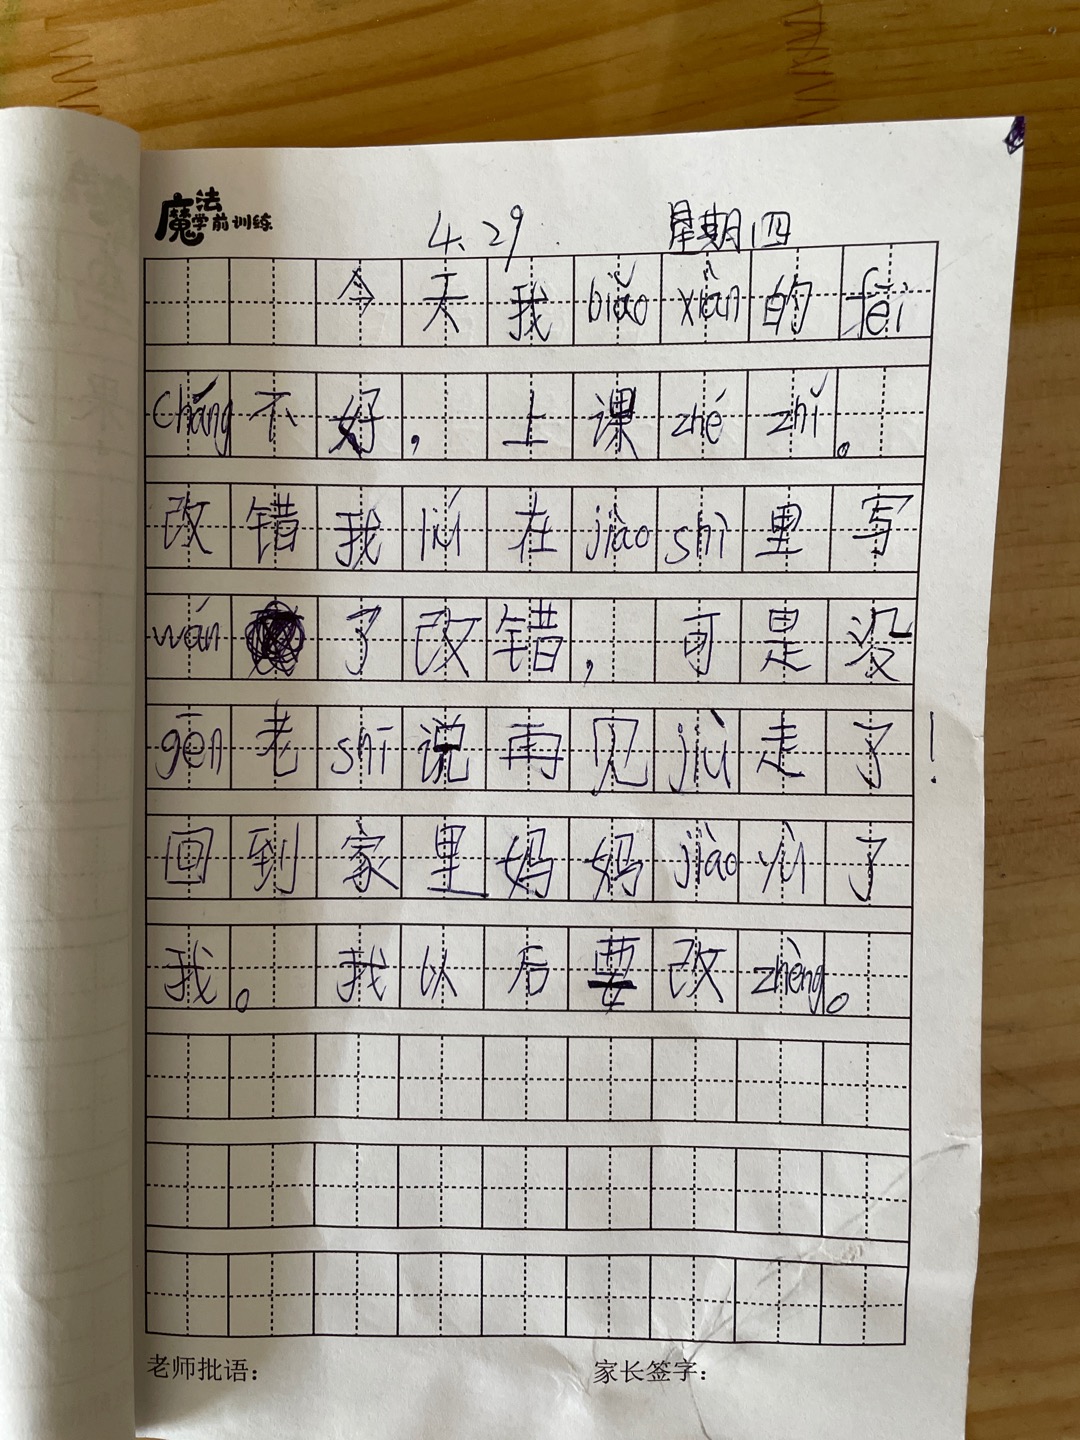 魔法学前训练
4.29 星期四
今天我biǎo xiàn的fēi
cháng不好，上课zhé zhǐ。
改错我liú在jiào shì里写
wán了改错，可是没
gēn老shī说再见jiù走了！
回到家里妈妈jiào yù了
我。我以后要改zhèng。
老师批语： 家长签字：